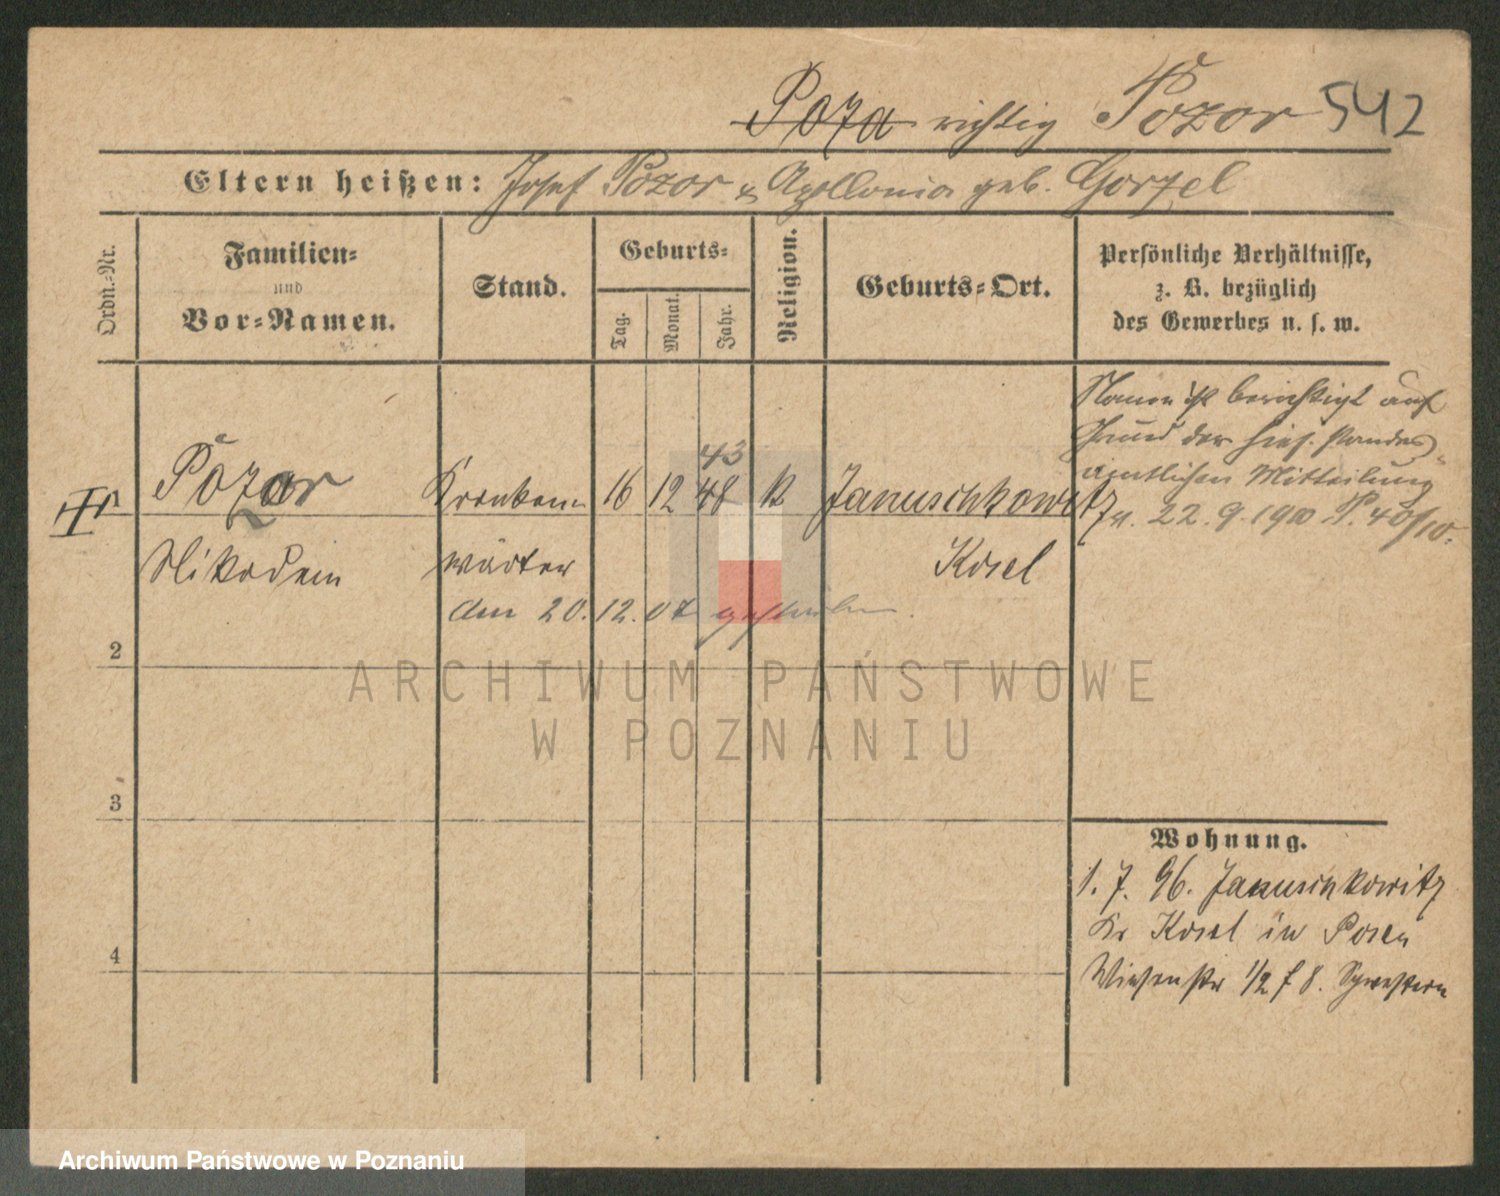 Poza richtig Pozor 542
Eltern heißen: Josef Pozor u. Apollonia geb. Gorzel
Ordn.-Nr.
Familien-
und
Vor-Namen.
Stand.
Geburts-
Tag.
Monat.
Jahr.
Religion.
Geburts-Ort.
Persönliche Verhältnisse,
z. B. bezüglich
des Gewerbes u. s. w.
Name ist berichtigt auf
Grund der hies. standes-
amtlichen Mitteilung
v. 22.9.1900 P. 40/10.
43
Pozor Kranken- 16 12 48 k Januschkowitz
Nikodem wärter Kosel
den 20.12.07 gestorben.
2
3
4
Wohnung.
1.7.96. Januschkowitz
Kr Kosel in Posen
Wiesenstr 1/2 f 8.
ARCHIWUM PAŃSTWOWE
W POZNANIU
Archiwum Państwowe w Poznaniu